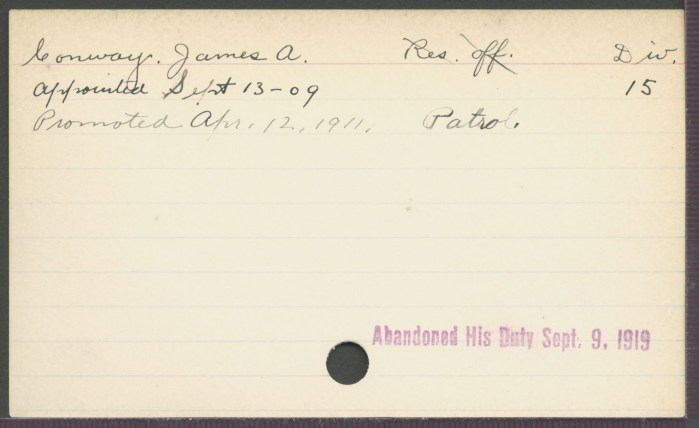 Conway. James A. Res. Off. Div.
Appointed Sept 13-09 15
Promoted Apr. 12, 1911. Patrol.
Abandoned His Duty Sept. 9, 1919